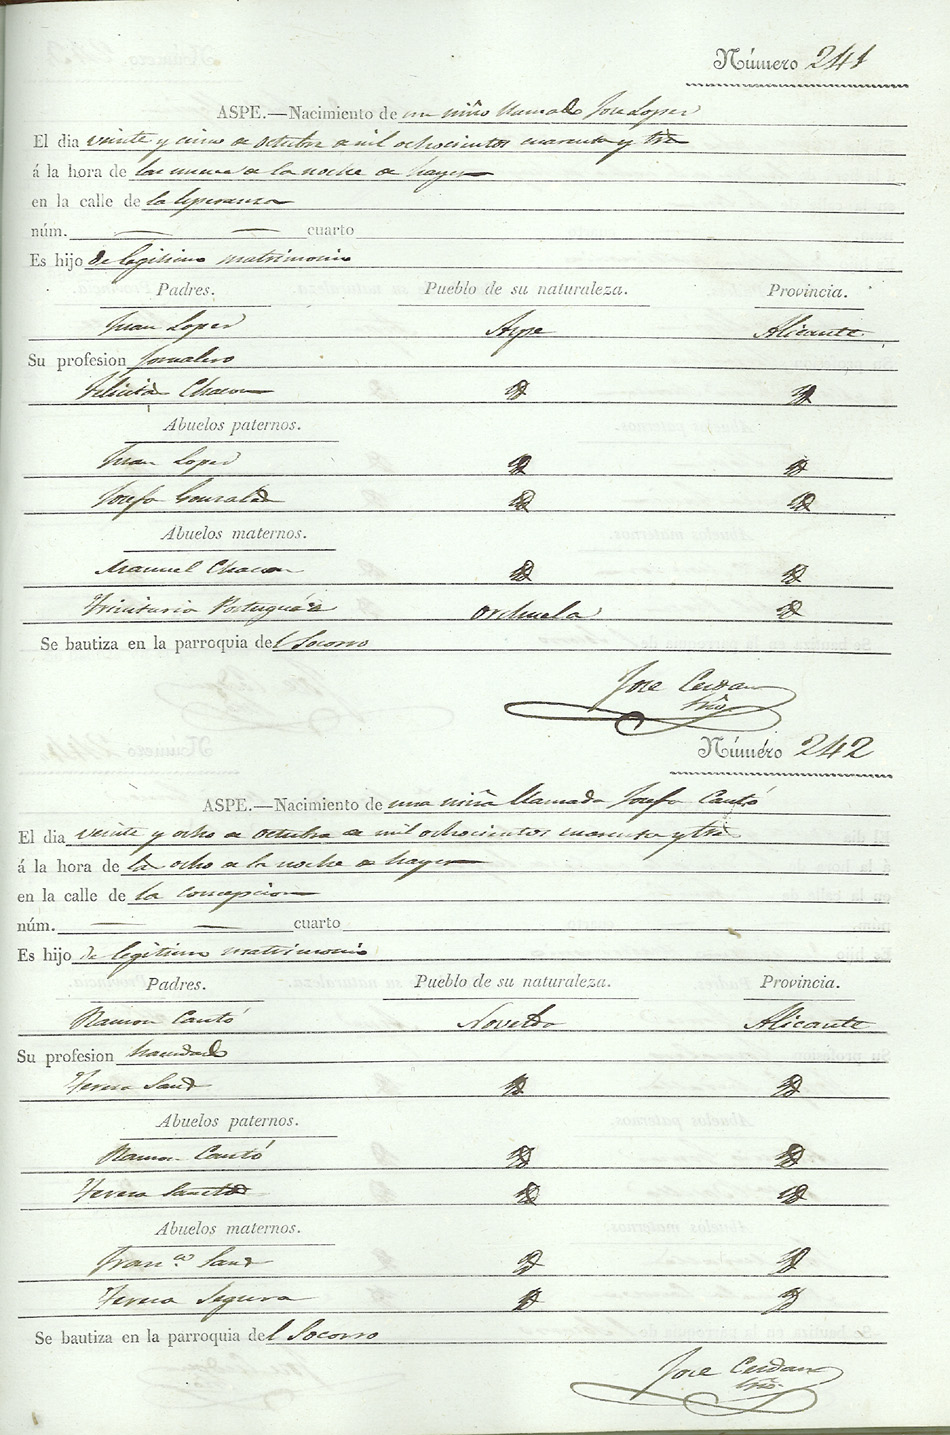 Número 241
ASPE.—Nacimiento de un niño llamado Jose Lopez
El dia veinte y cinco de octubre de mil ochocientos cuarenta y tres
á la hora de las nueve de la noche de hayer
en la calle de la Esperanza
núm. — — cuarto
Es hijo de legitimo matrimonio
Padres. Pueblo de su naturaleza. Provincia.
Juan Lopez Aspe Alicante
Su profesion Jornalero
Felicia Chacon Id Id
Abuelos paternos.
Juan Lopez Id Id
Josefa Gonzalez Id Id
Abuelos maternos.
Manuel Chacon Id Id
Trinitaria Portuguesa Orihuela Id
Se bautiza en la parroquia del Socorro
Jose Cerdan
Srio
Número 242
ASPE.—Nacimiento de una niña llamada Josefa Cantó
El dia veinte y ocho de octubre de mil ochocientos cuarenta y tres
á la hora de la ocho de la noche de hayer
en la calle de la concepcion
núm. — — cuarto
Es hijo de legitimo matrimonio
Padres. Pueblo de su naturaleza. Provincia.
Ramon Cantó Novelda Alicante
Su profesion
Teresa Id Id
Abuelos paternos.
Ramon Cantó Id Id
Teresa Id Id
Abuelos maternos.
Fran.co Id Id
Teresa Segura Id Id
Se bautiza en la parroquia del Socorro
Jose Cerdan
Srio